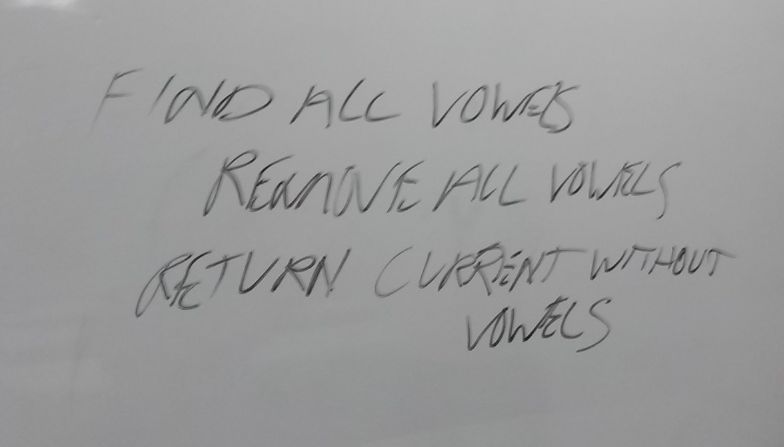 FIND ALL VOWELS
REMOVE ALL VOWELS
RETURN CURRENT WITHOUT
VOWELS